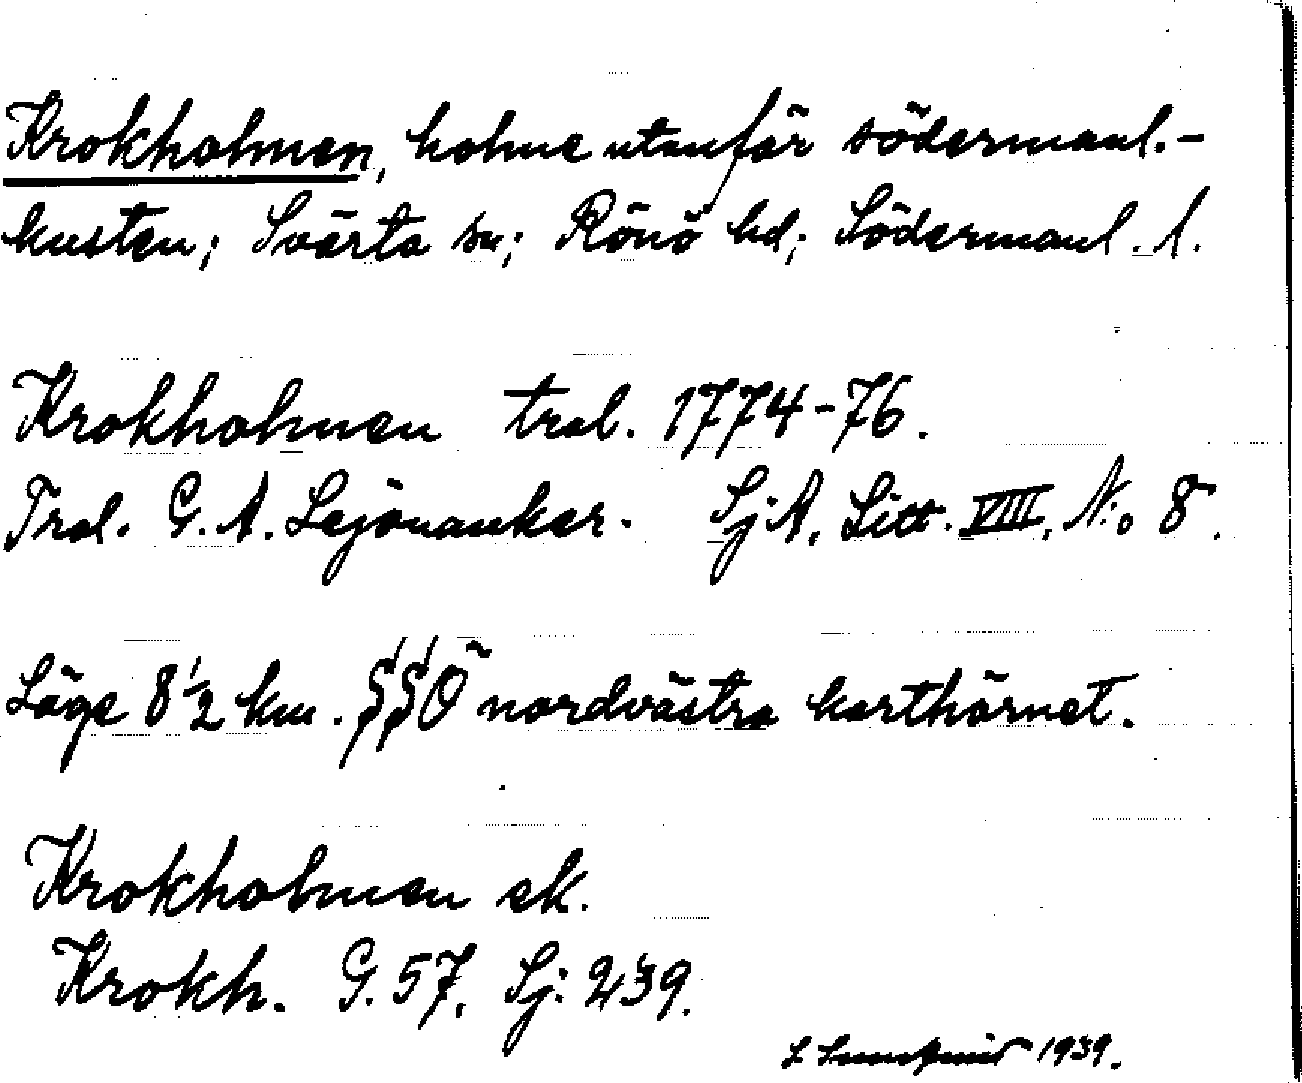 Krokholmen, holme utanför södermanl.-
kusten; Svärta sn; Rönö hd; Södermanl. l.
Krokholmen tral. 1774-76.
Tral. G. A. Lejonanker. Sj.A. Litt. VIII, N:o 8.
Läge 8 1/2 km. SSO nordvästra karthörnet.
Krokholmen ek.
Krokh. G. 57. Sj: 239.
1939.